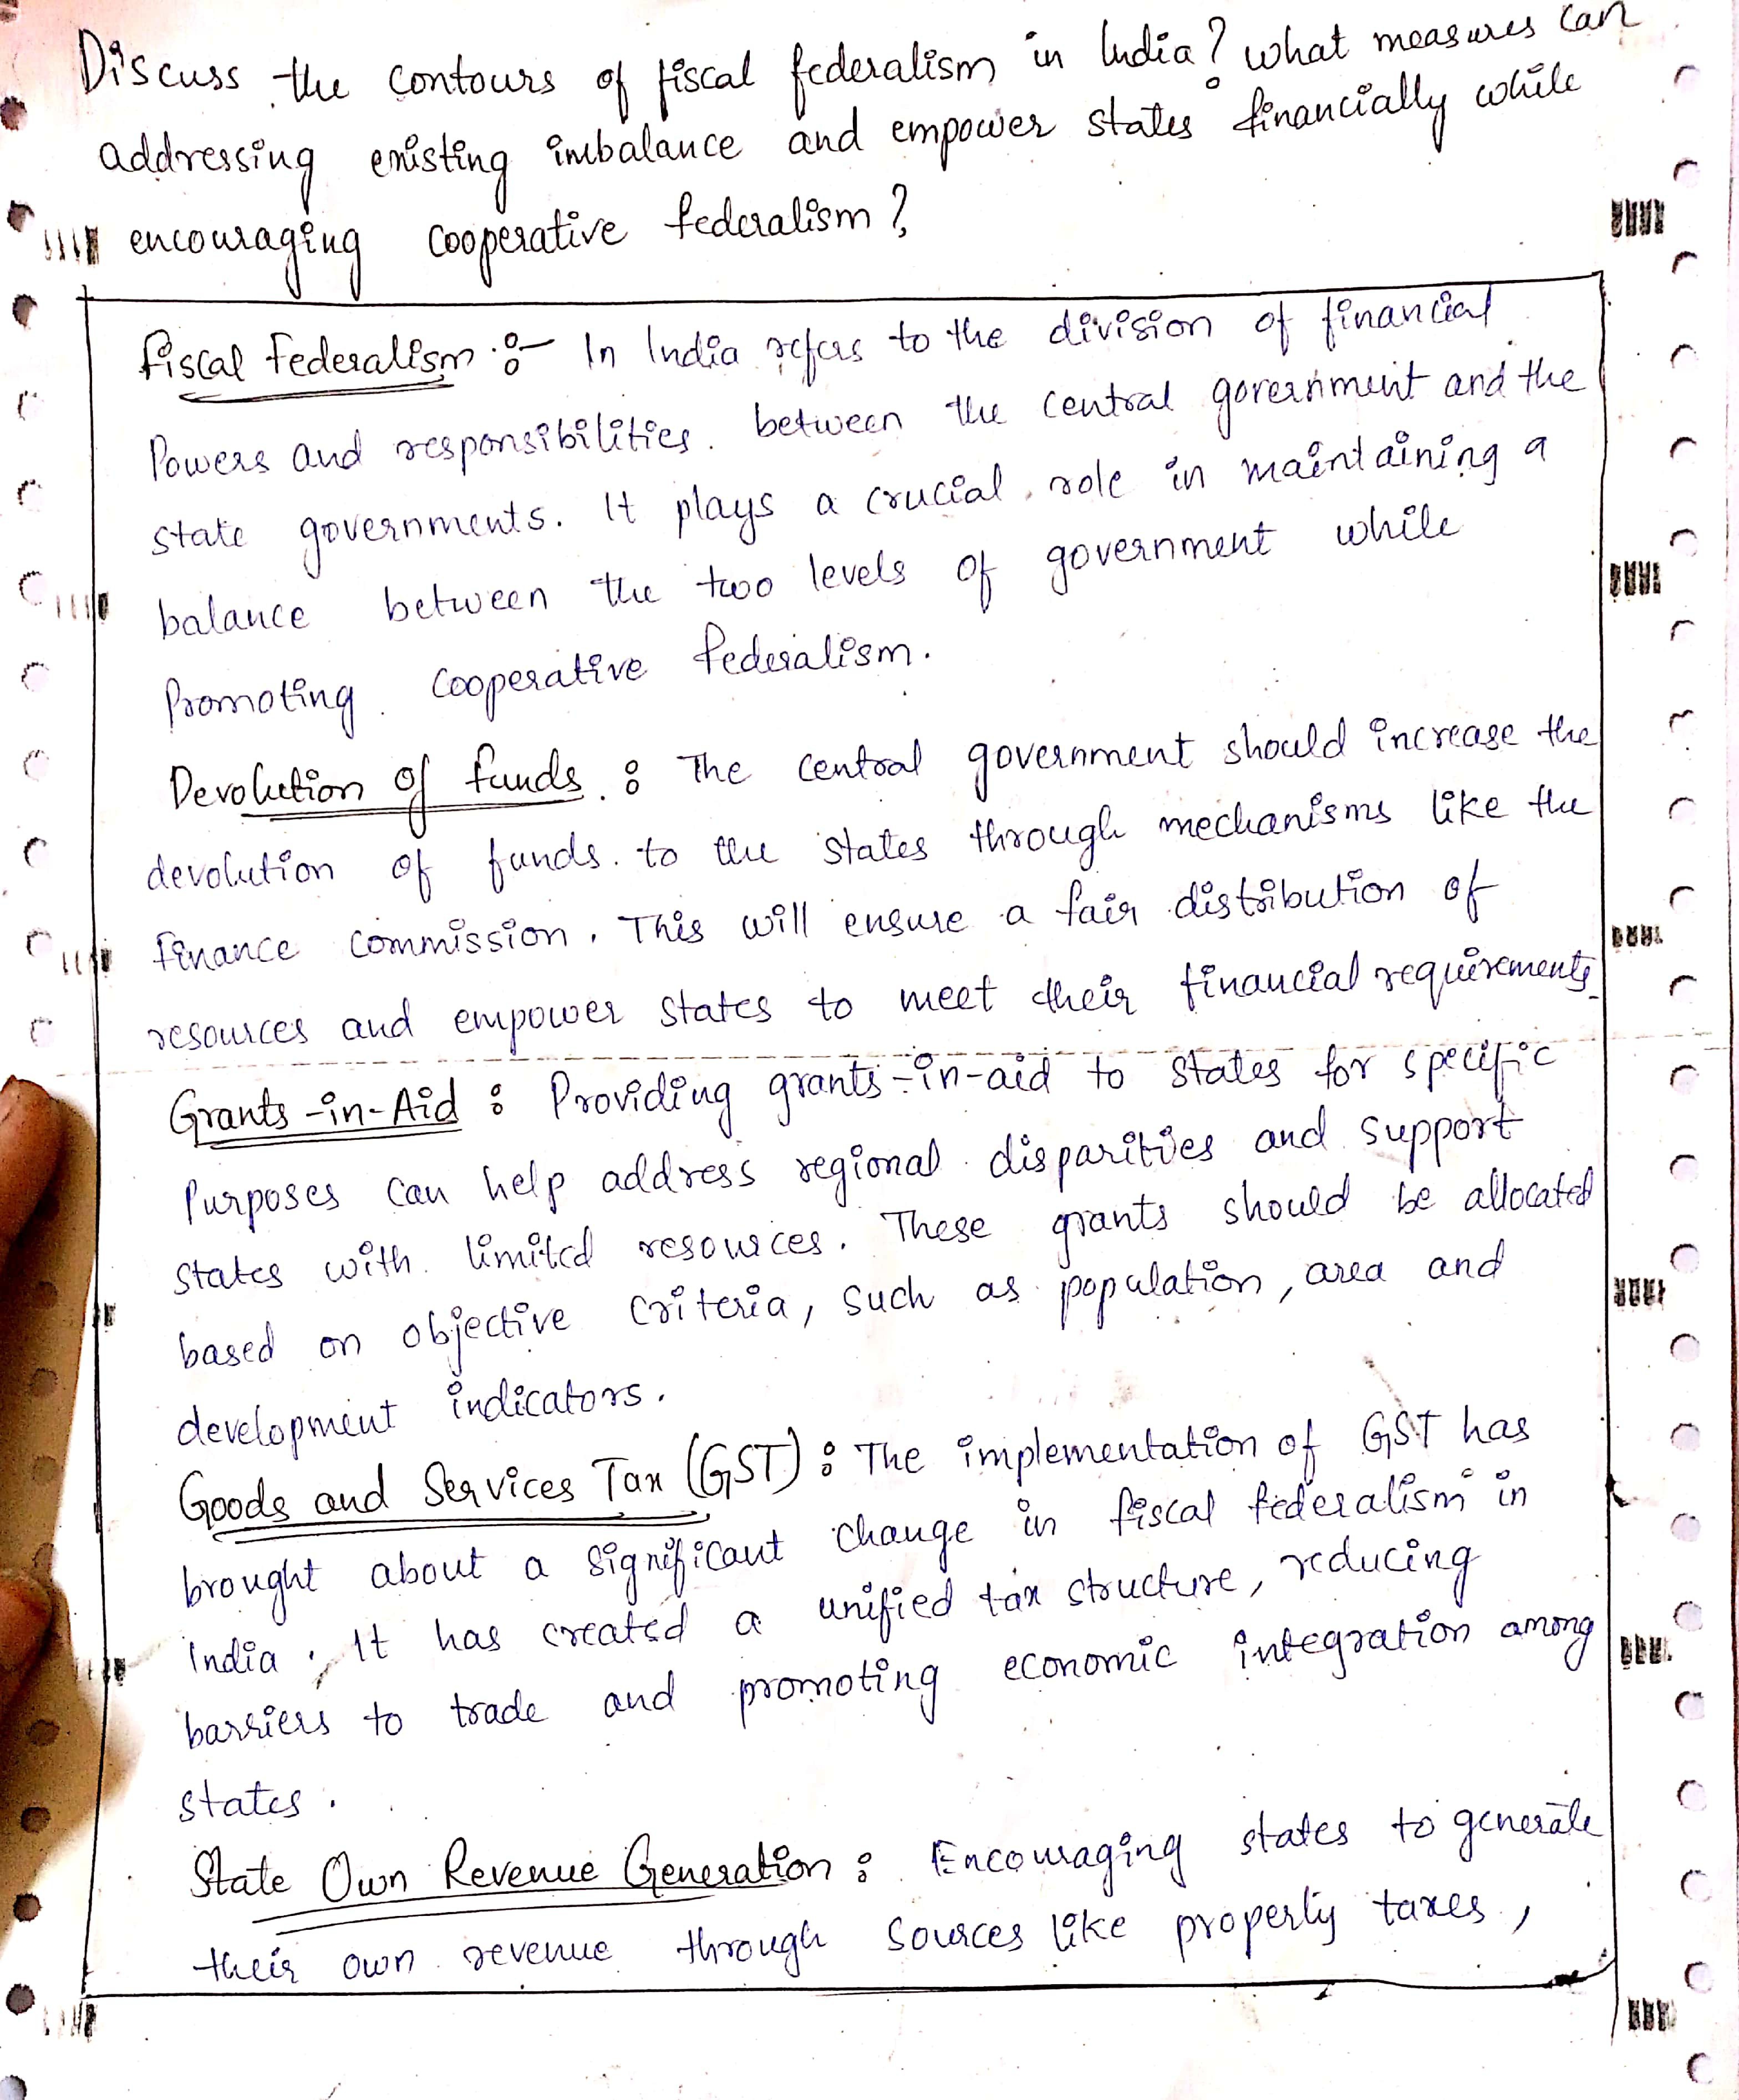 Discuss the contours of fiscal federalism in India? what measures can
addressing existing imbalance and empower states financially while
encouraging cooperative federalism?
Fiscal Federalism :- In India refers to the division of financial
Powers and responsibilities. between the central government and the
state governments. It plays a crucial role in maintaining a
balance between the two levels of government while
Promoting cooperative federalism.
Devolution of funds : The central government should increase the
devolution of funds. to the states through mechanisms like the
finance commission. This will ensure a fair distribution of
resources and empower states to meet their financial requirements
Grants-in-Aid : Providing grants-in-aid to states for specific
Purposes can help address regional disparities and support
states with limited resources. These grants should be allocated
based on objective criteria, such as population, area and
development indicators.
Goods and Services Tax (GST) : The implementation of GST has
brought about a significant change in fiscal federalism in
India. It has created a unified tax structure, reducing
barriers to trade and promoting economic integration among
states.
State Own Revenue Generation : Encouraging states to generate
their own revenue through sources like property taxes,